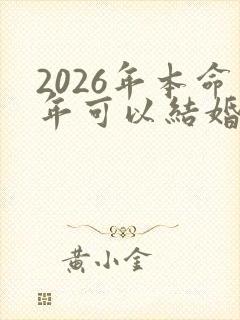 2026年本命
年可以結婚
黃小金